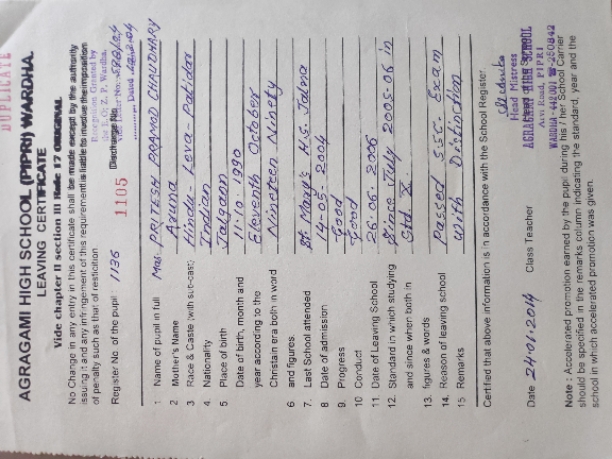 DUPLICATE
AGRAGAMI HIGH SCHOOL (PIPRI) WARDHA.
LEAVING CERTIFICATE
Vide chapter II section III Rule 17
No Change in any entry in this certificate shall be made except by the authority
issuing it and any infringement of this requirement is liable to involve the imposition
of penalty such as that of
Register No of the pupil 1136 1105 Discharge No.
1 Name of pupil in full Mas. PRITESH PRAMOD CHAUDHARY
2 Mother's Name Aruna
3 Race & Caste (with sub-cast) Hindu - Leva - Patidar
4. Nationality Indian
5 Place of birth Jalgaon
Date of birth, month and 11-10-1990
year according to the Eleventh October
Christain era both in word Nineteen Ninety
6 and figures.
7. Last School attended St. Mary's H.S. Jalna
8 Date of admission 14-05-2004
9. Progress Good
10 Conduct Good
11 Date of Leaving School 26.06.2006
12. Standard in which studying Since July 2005-06 in
and since when both in Std X.
13. figures & words
14. Reason of leaving school Passed S.S.C. Exam
15 Remarks With Distinction
Certified that above information is in accordance with the School Register.
Date 24.01.2014 Class Teacher
Head Mistress
AGRAGAMI HIGH SCHOOL
Arvi Road, PIPRI
WARDHA-442001
Note : Accelerated promotion earned by the pupil during his / her School Carrier
should be specified in the remarks column indicating the standard, year and the
school in which accelerated promotion was given.